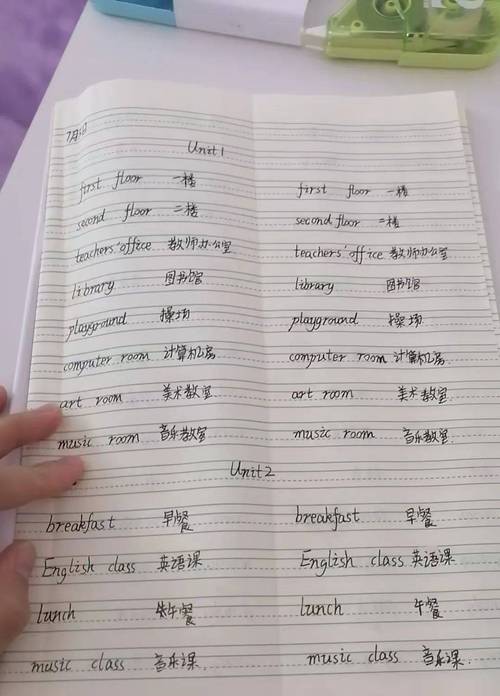 Unit 1
first floor 一楼 first floor 一楼
second floor 二楼 second floor 二楼
teachers' office 教师办公室 teachers' office 教师办公室
library 图书馆 library 图书馆
playground 操场 playground 操场
computer room 计算机房 computer room 计算机房
art room 美术教室 art room 美术教室
music room 音乐教室 music room 音乐教室
Unit 2
breakfast 早餐 breakfast 早餐
English class 英语课 English class 英语课
lunch 午餐 lunch 午餐
music class 音乐课 music class 音乐课